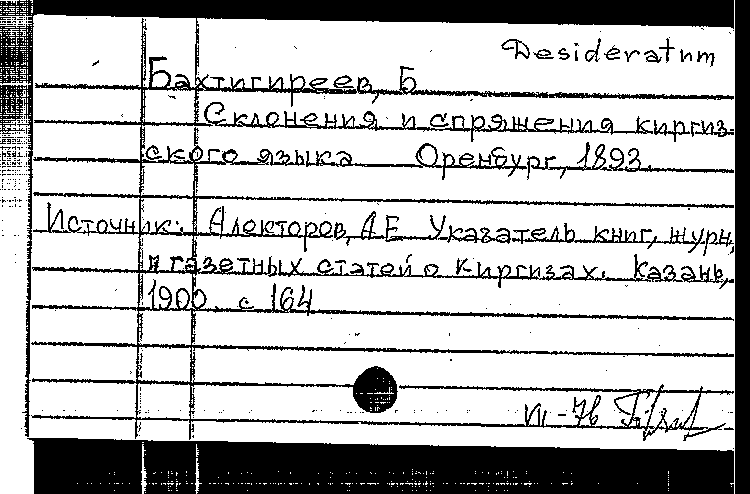 Desideratum
Бахтигиреев, Б
Склонения и спряжения киргиз-
ского языка Оренбург, 1893.
Источник: Алекторов, А Е Указатель книг, журн,
и газетных статей о киргизах. Казань,
1900. с 164
VII - 76